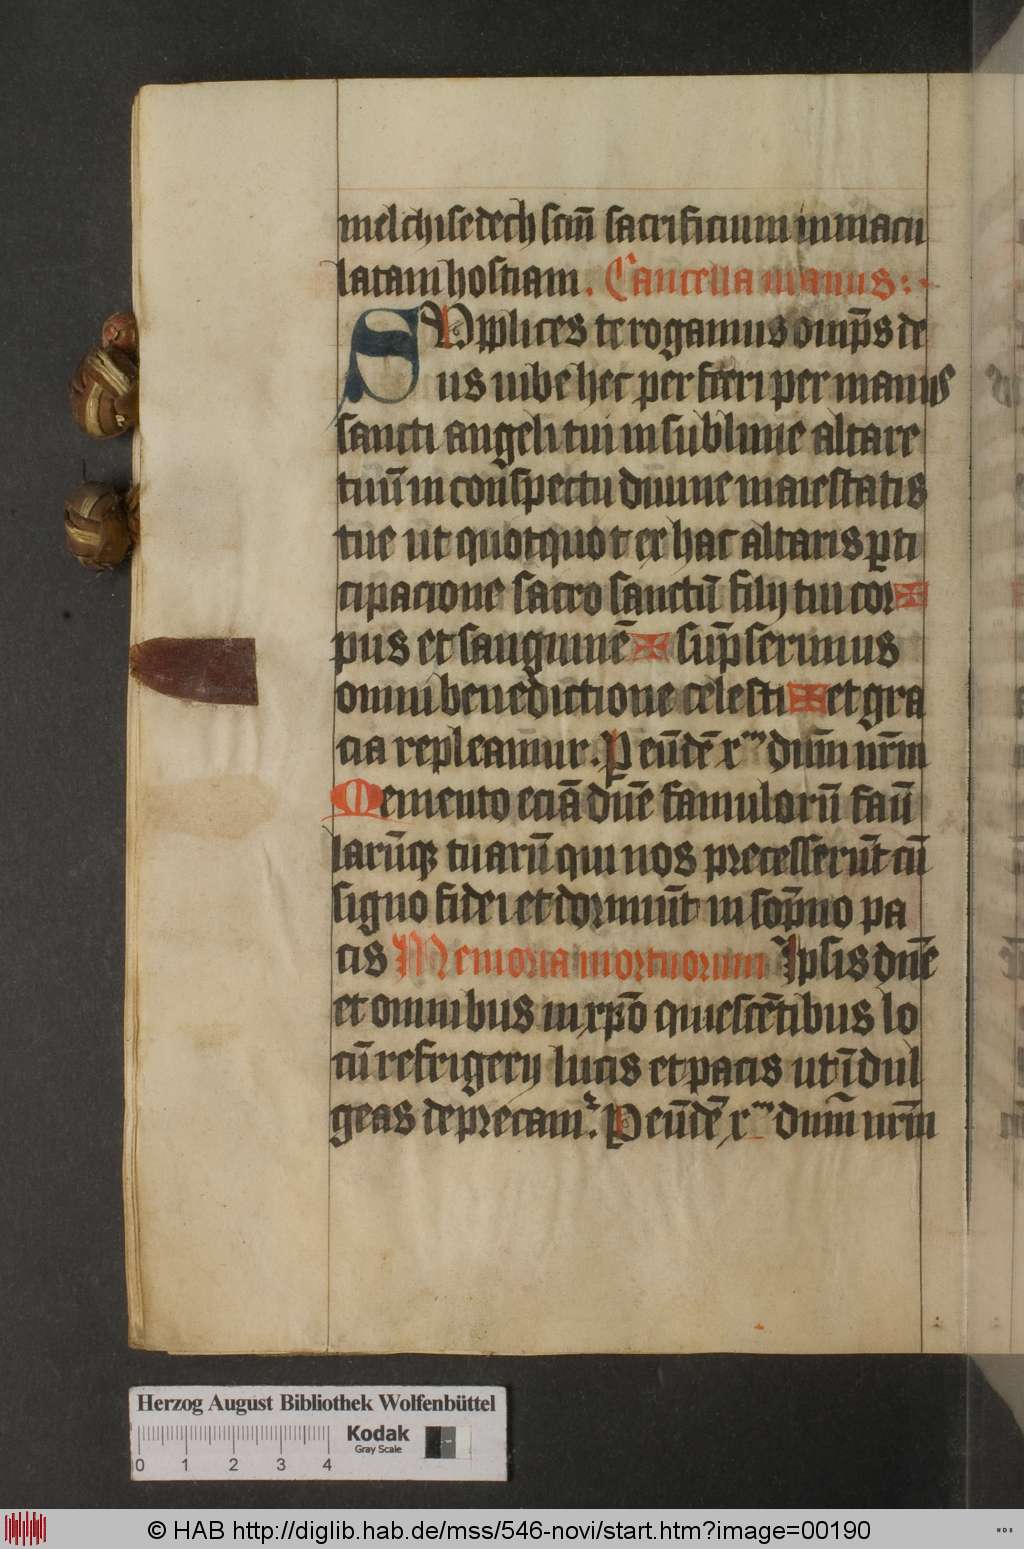 melchisedech scm̄ sacrificium inmacu
latam hostiam. Cancella manus:·
SUpplices te rogamus omp̄s de
us iube hec perferri per manus
sancti angeli tui in sublime altare
tuū in conspectu diuine maiestatis
tue ut quotquot ex hac altaris ꝑti
cipacione sacro sanctū filij tui cor ✠
pus et sanguinē ✠ sūpserimus
omni benedictione celesti ✠ et gra
cia repleamur. P eūdē xᵐ dnm̄ nrm̄
Memento eciā dnē famulorū faū
larūqꝫ tuarū qui nos precesserūt cū
signo fidei et dormiūt in sop̄no pa
cis Memoria mortuorum Ipsis dnē
et omnibus in xp̄o quiescētibus lo
cū refrigerij lucis et pacis ut īdul
geas deprecam̄ᷣ. P eūdē xᵐ dnm̄ nrm̄
Herzog August Bibliothek Wolfenbüttel
Kodak
Gray Scale
0 1 2 3 4
© HAB http://diglib.hab.de/mss/546-novi/start.htm?image=00190